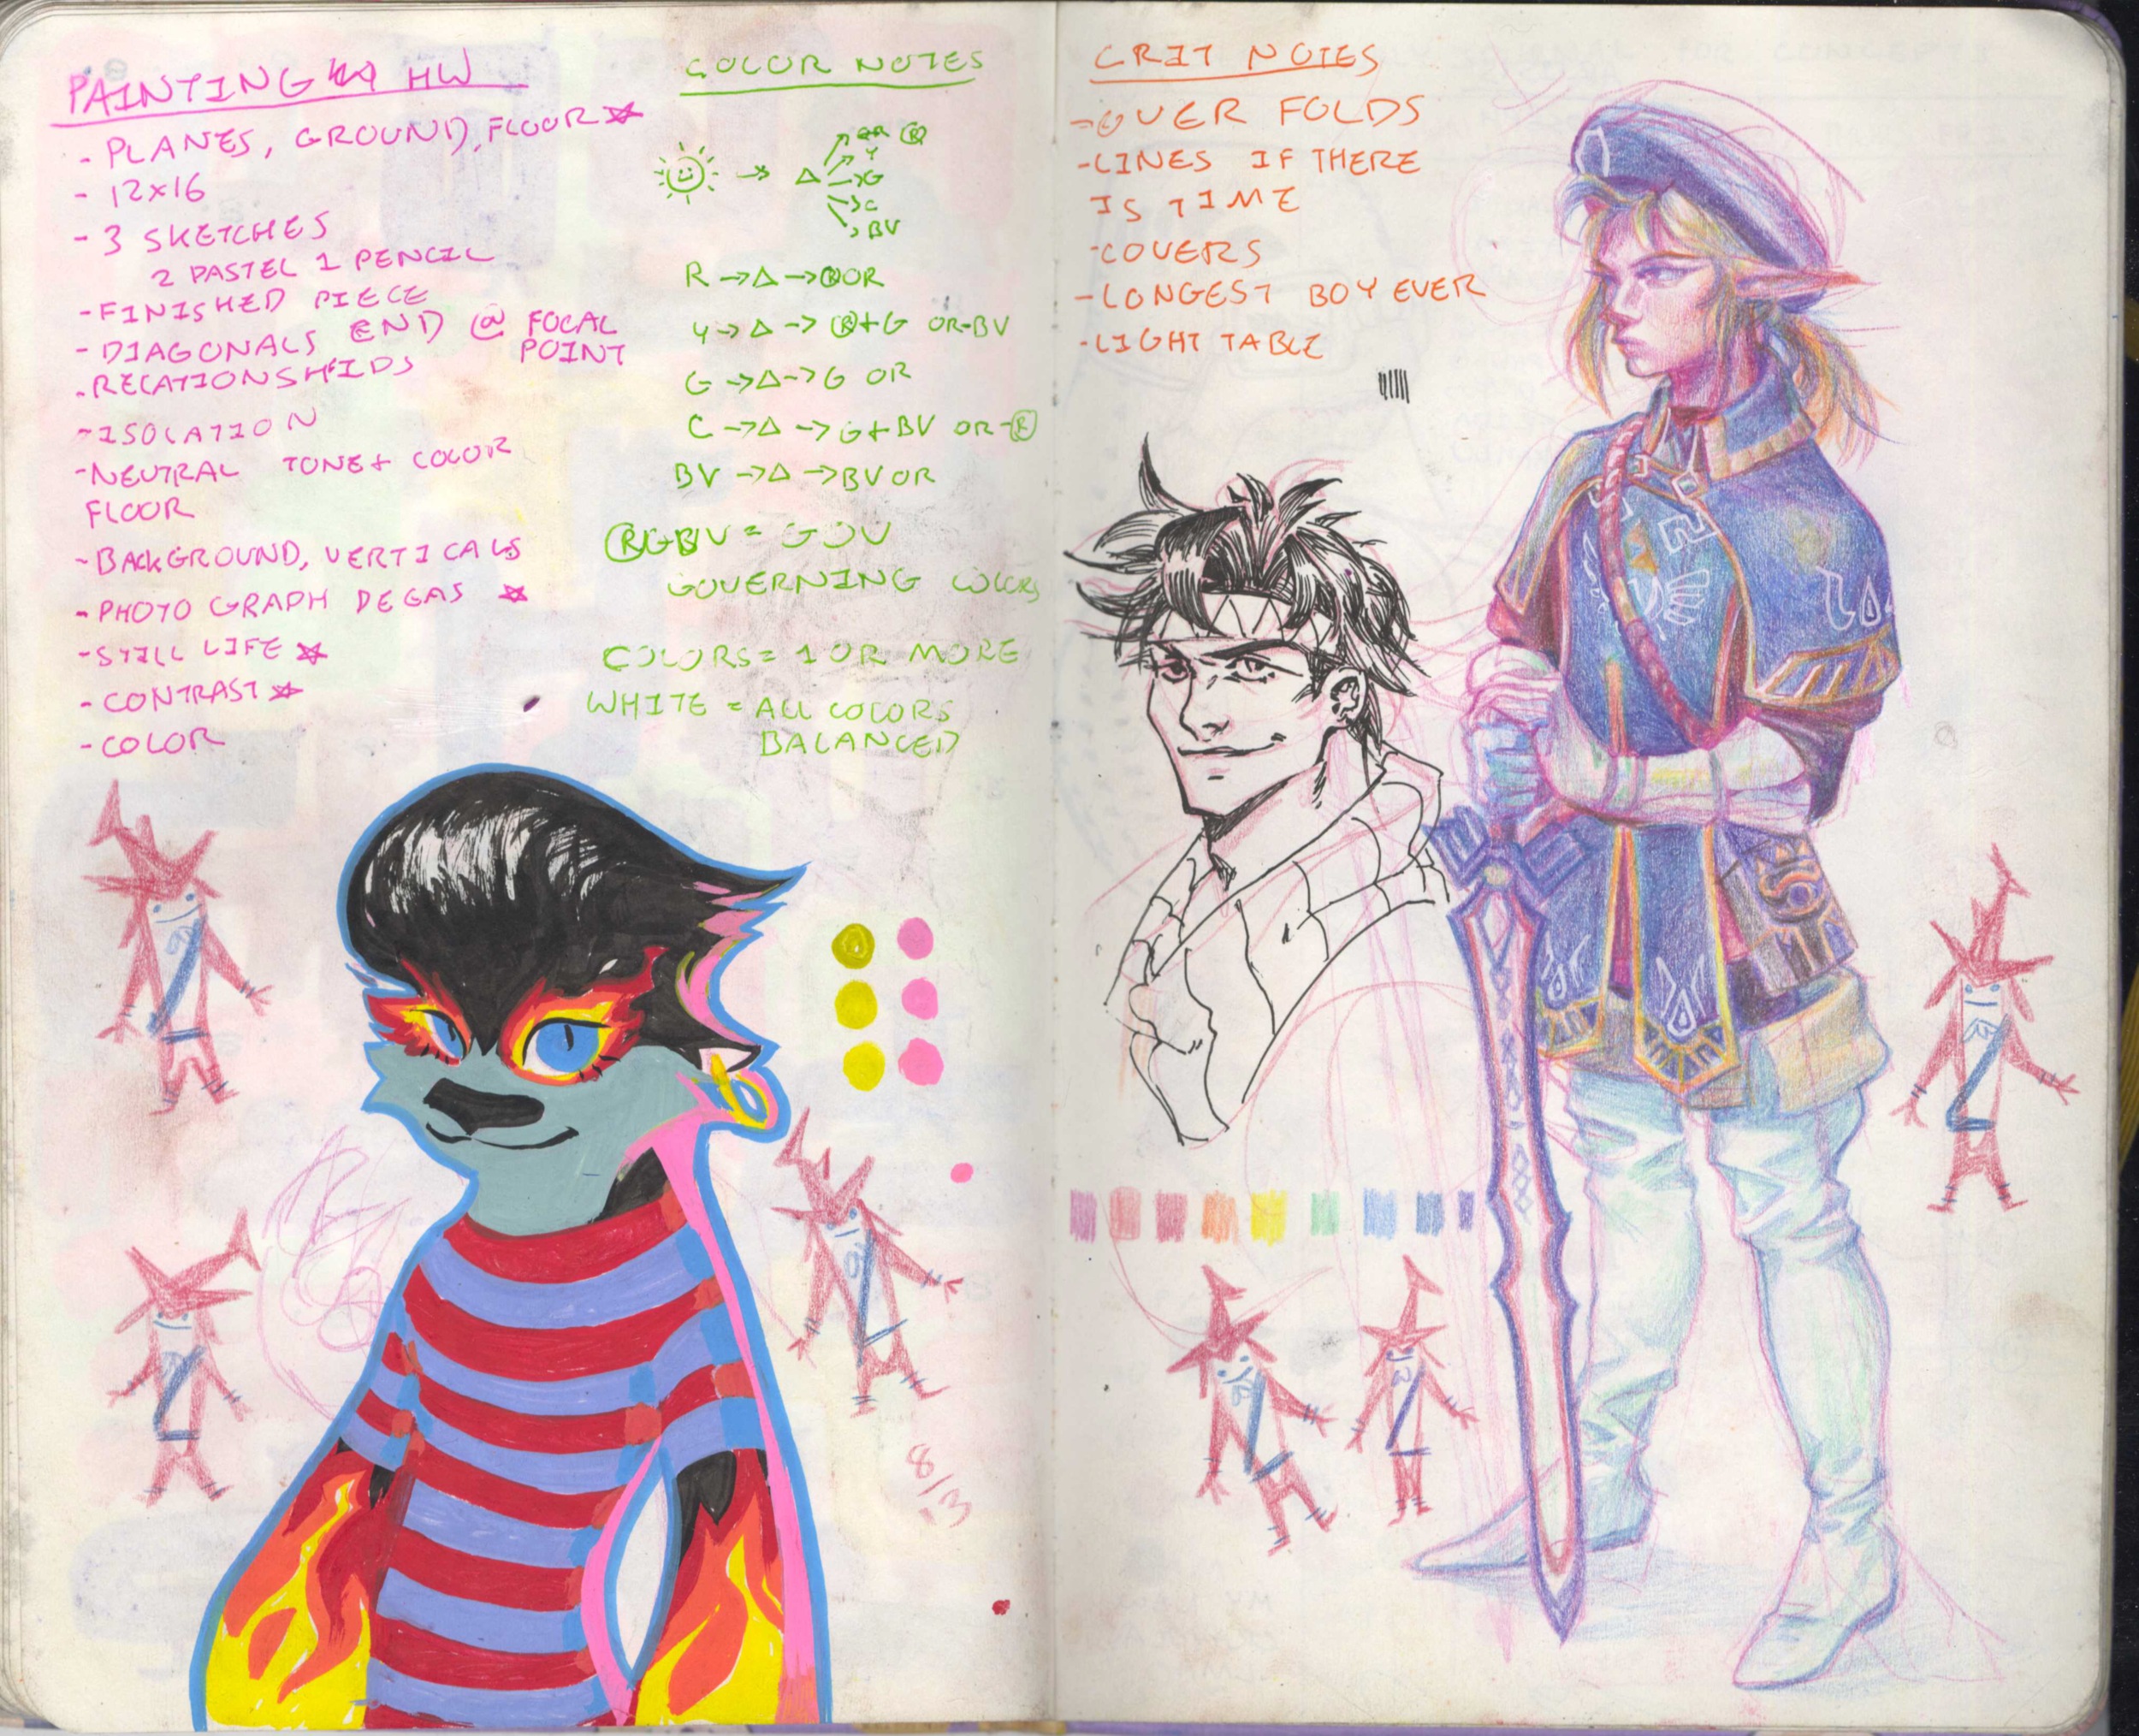 PAINTING HW
- PLANES, GROUND, FLOOR
- 12x16
- 3 SKETCHES
2 PASTEL 1 PENCIL
- FINISHED PIECE
- DIAGONALS END @ FOCAL
POINT
- RELATIONSHIPS
- ISOLATION
- NEUTRAL TONE + COLOR
FLOOR
- BACKGROUND, VERTICALS
- PHOTO GRAPH DEGAS
- STILL LIFE
- CONTRAST
- COLOR
COLOR NOTES
→ △ OR Ⓡ
Y
G
C
BV
R → △ → Ⓡ OR
Y → △ → Ⓡ+G OR-BV
G → △ → G OR
C → △ → G+BV OR-Ⓡ
BV → △ → BV OR
ⓇGBV = GOV
GOVERNING COLORS
COLORS = 1 OR MORE
WHITE = ALL COLORS
BALANCED
8/13
CRIT NOTES
- OVER FOLDS
- LINES IF THERE
IS TIME
- COVERS
- LONGEST BOY EVER
- LIGHT TABLE